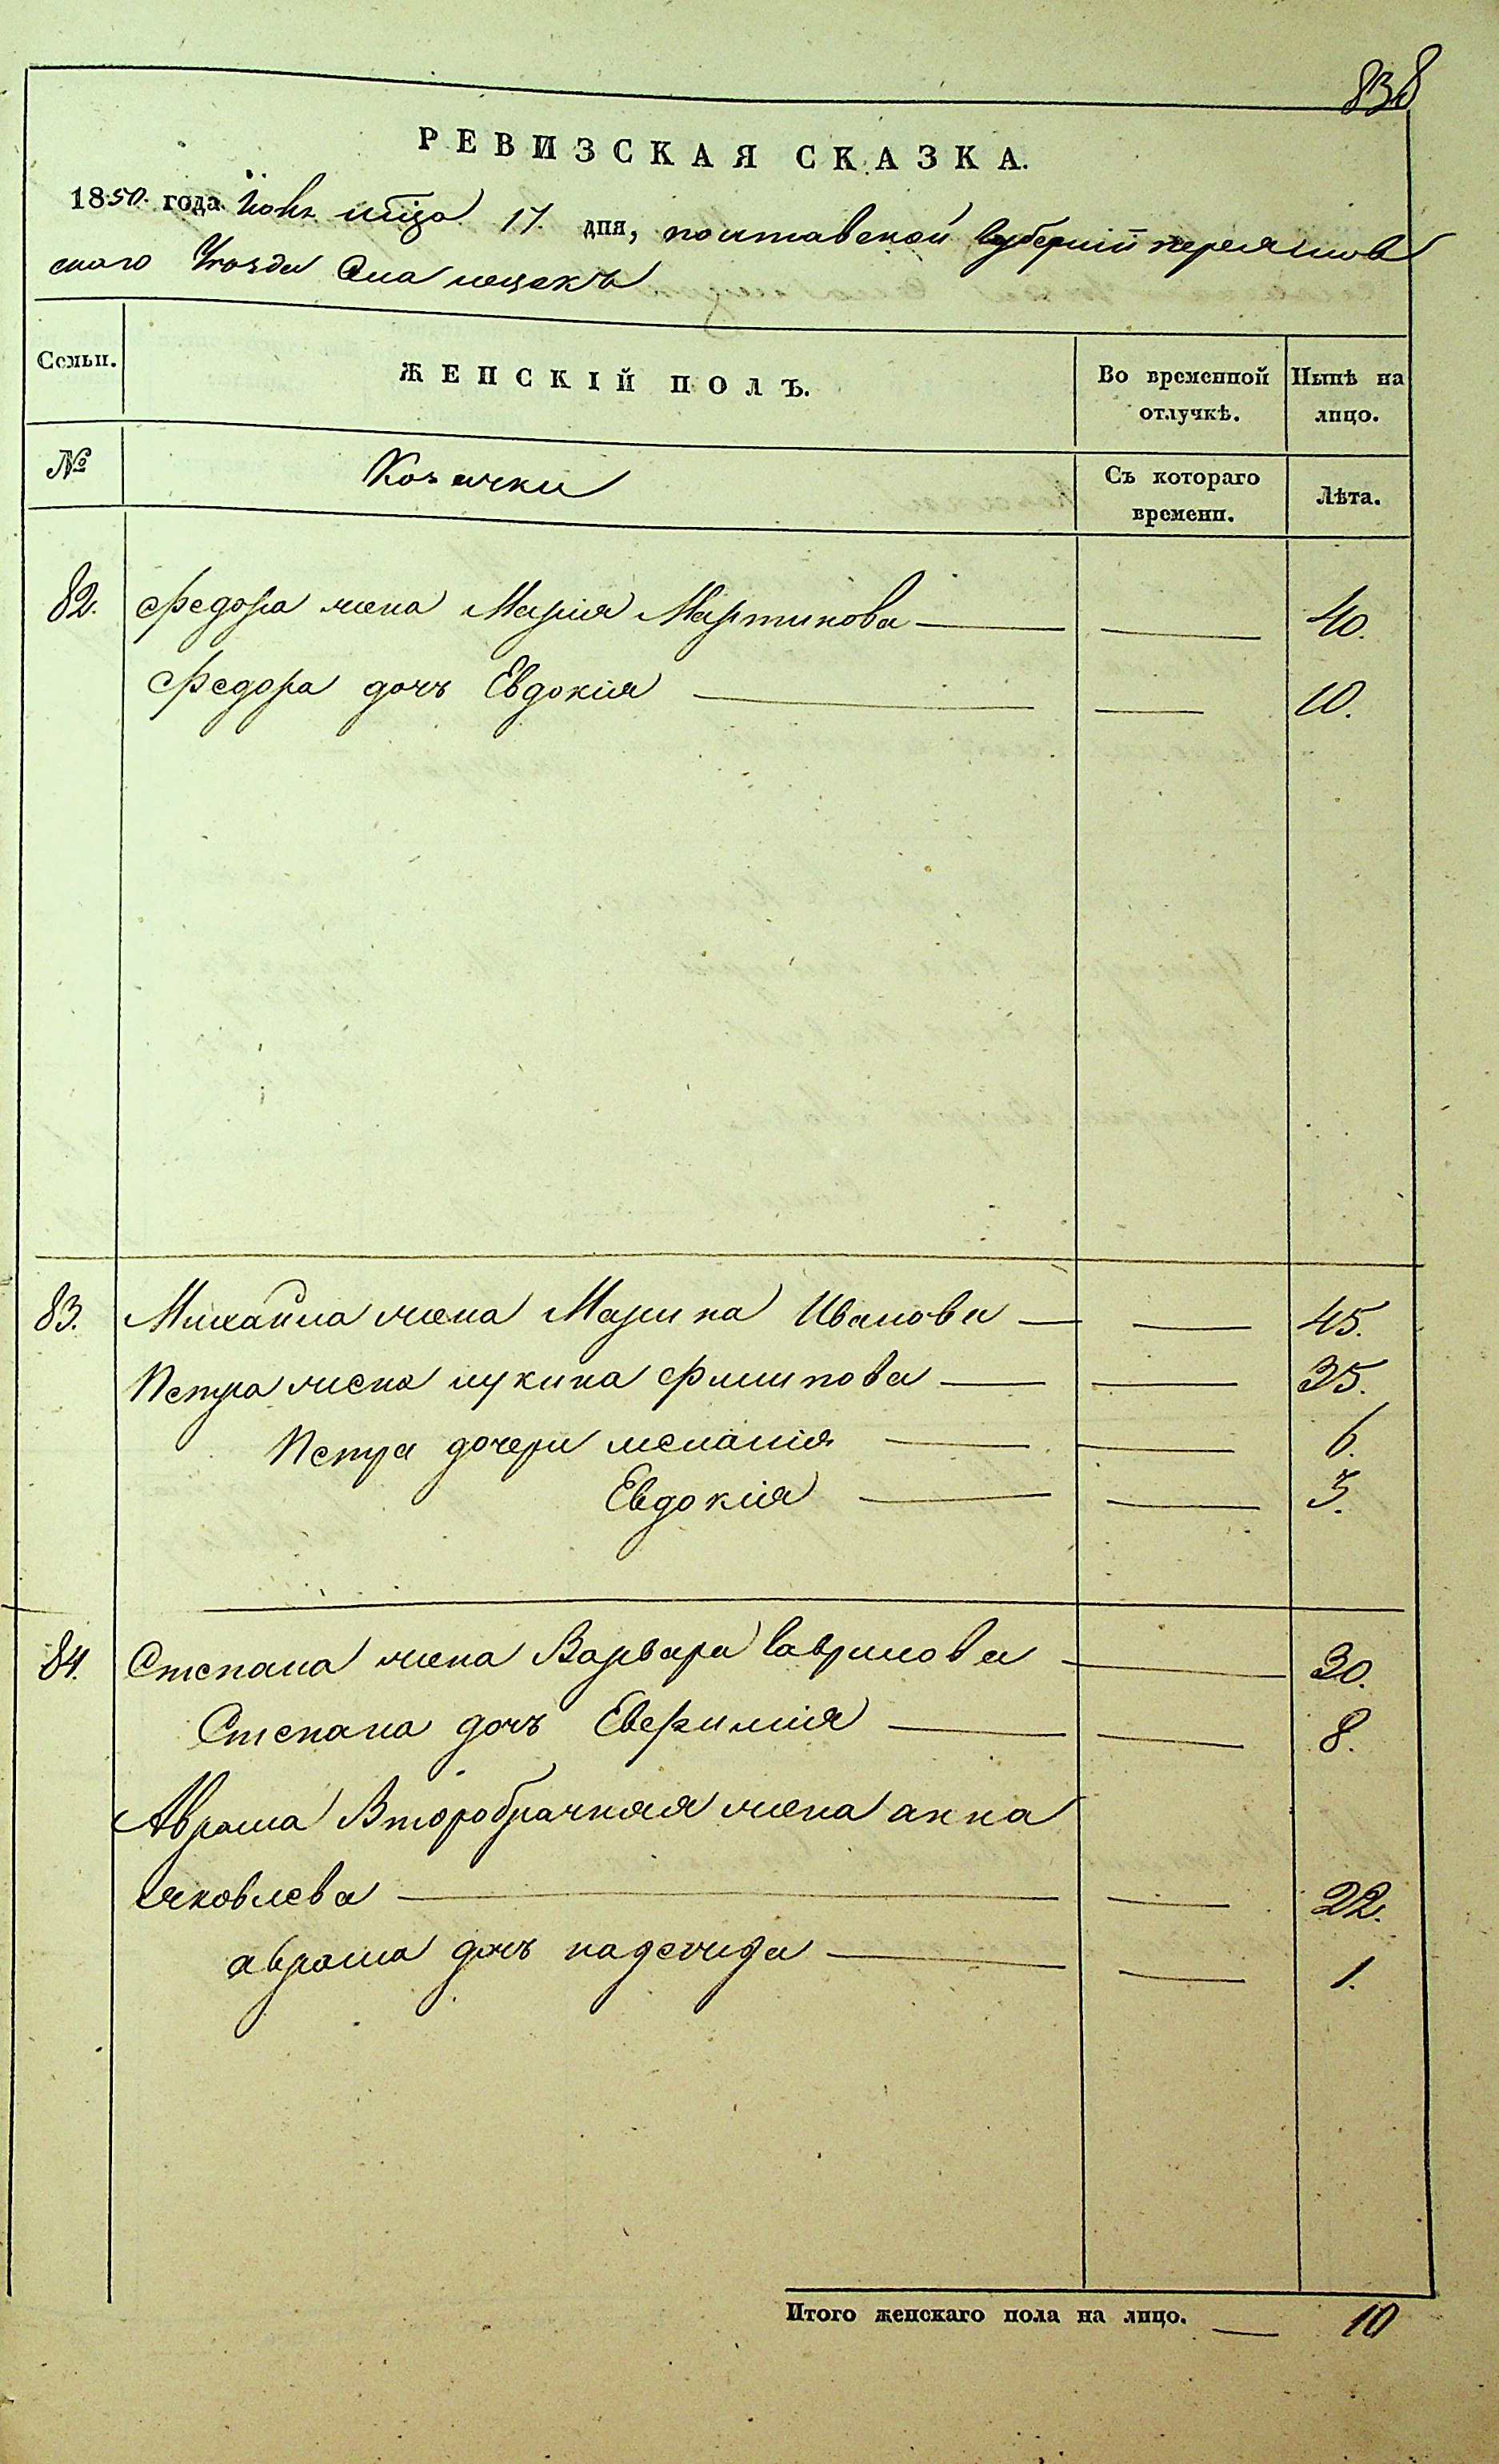 838
РЕВИЗСКАЯ СКАЗКА.
1850. года Июня мца 17. дня, полтавской губерній переяслов
скаго Уезда Села
Семьи. ЖЕНСКІЙ ПОЛЪ. Во временной отлучкѣ. Нынѣ на лицо.
№ Козачки Съ котораго времени. Лѣта.
82. Федора жена Марія Мартинова 40.
Федора дочь Евдокія 10.
83. Михаила жена Марина Иванова 45.
Петра жена Филипова 35.
Петра дочери меланія 6.
Евдокія 3.
84. Степана жена Варвара гаврилова 30.
Степана дочь Евфимія 8.
Аврама Второбрачная жена анна
яковлева 22.
аврама дочь надежда 1.
Итого женскаго пола на лицо. 10